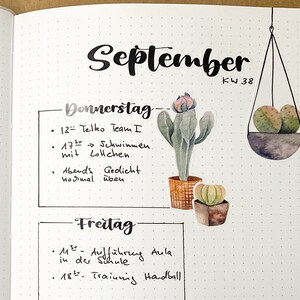 September
KW 38
Donnerstag
• 12⁰⁰ Telko Team I
• 17³⁰ → Schwimmen
mit Lottchen
• Abends Gedicht
nochmal üben
Freitag
• 11³⁰ - Aufführung Aula
in der Schule
• 18³⁰ - Training Handball